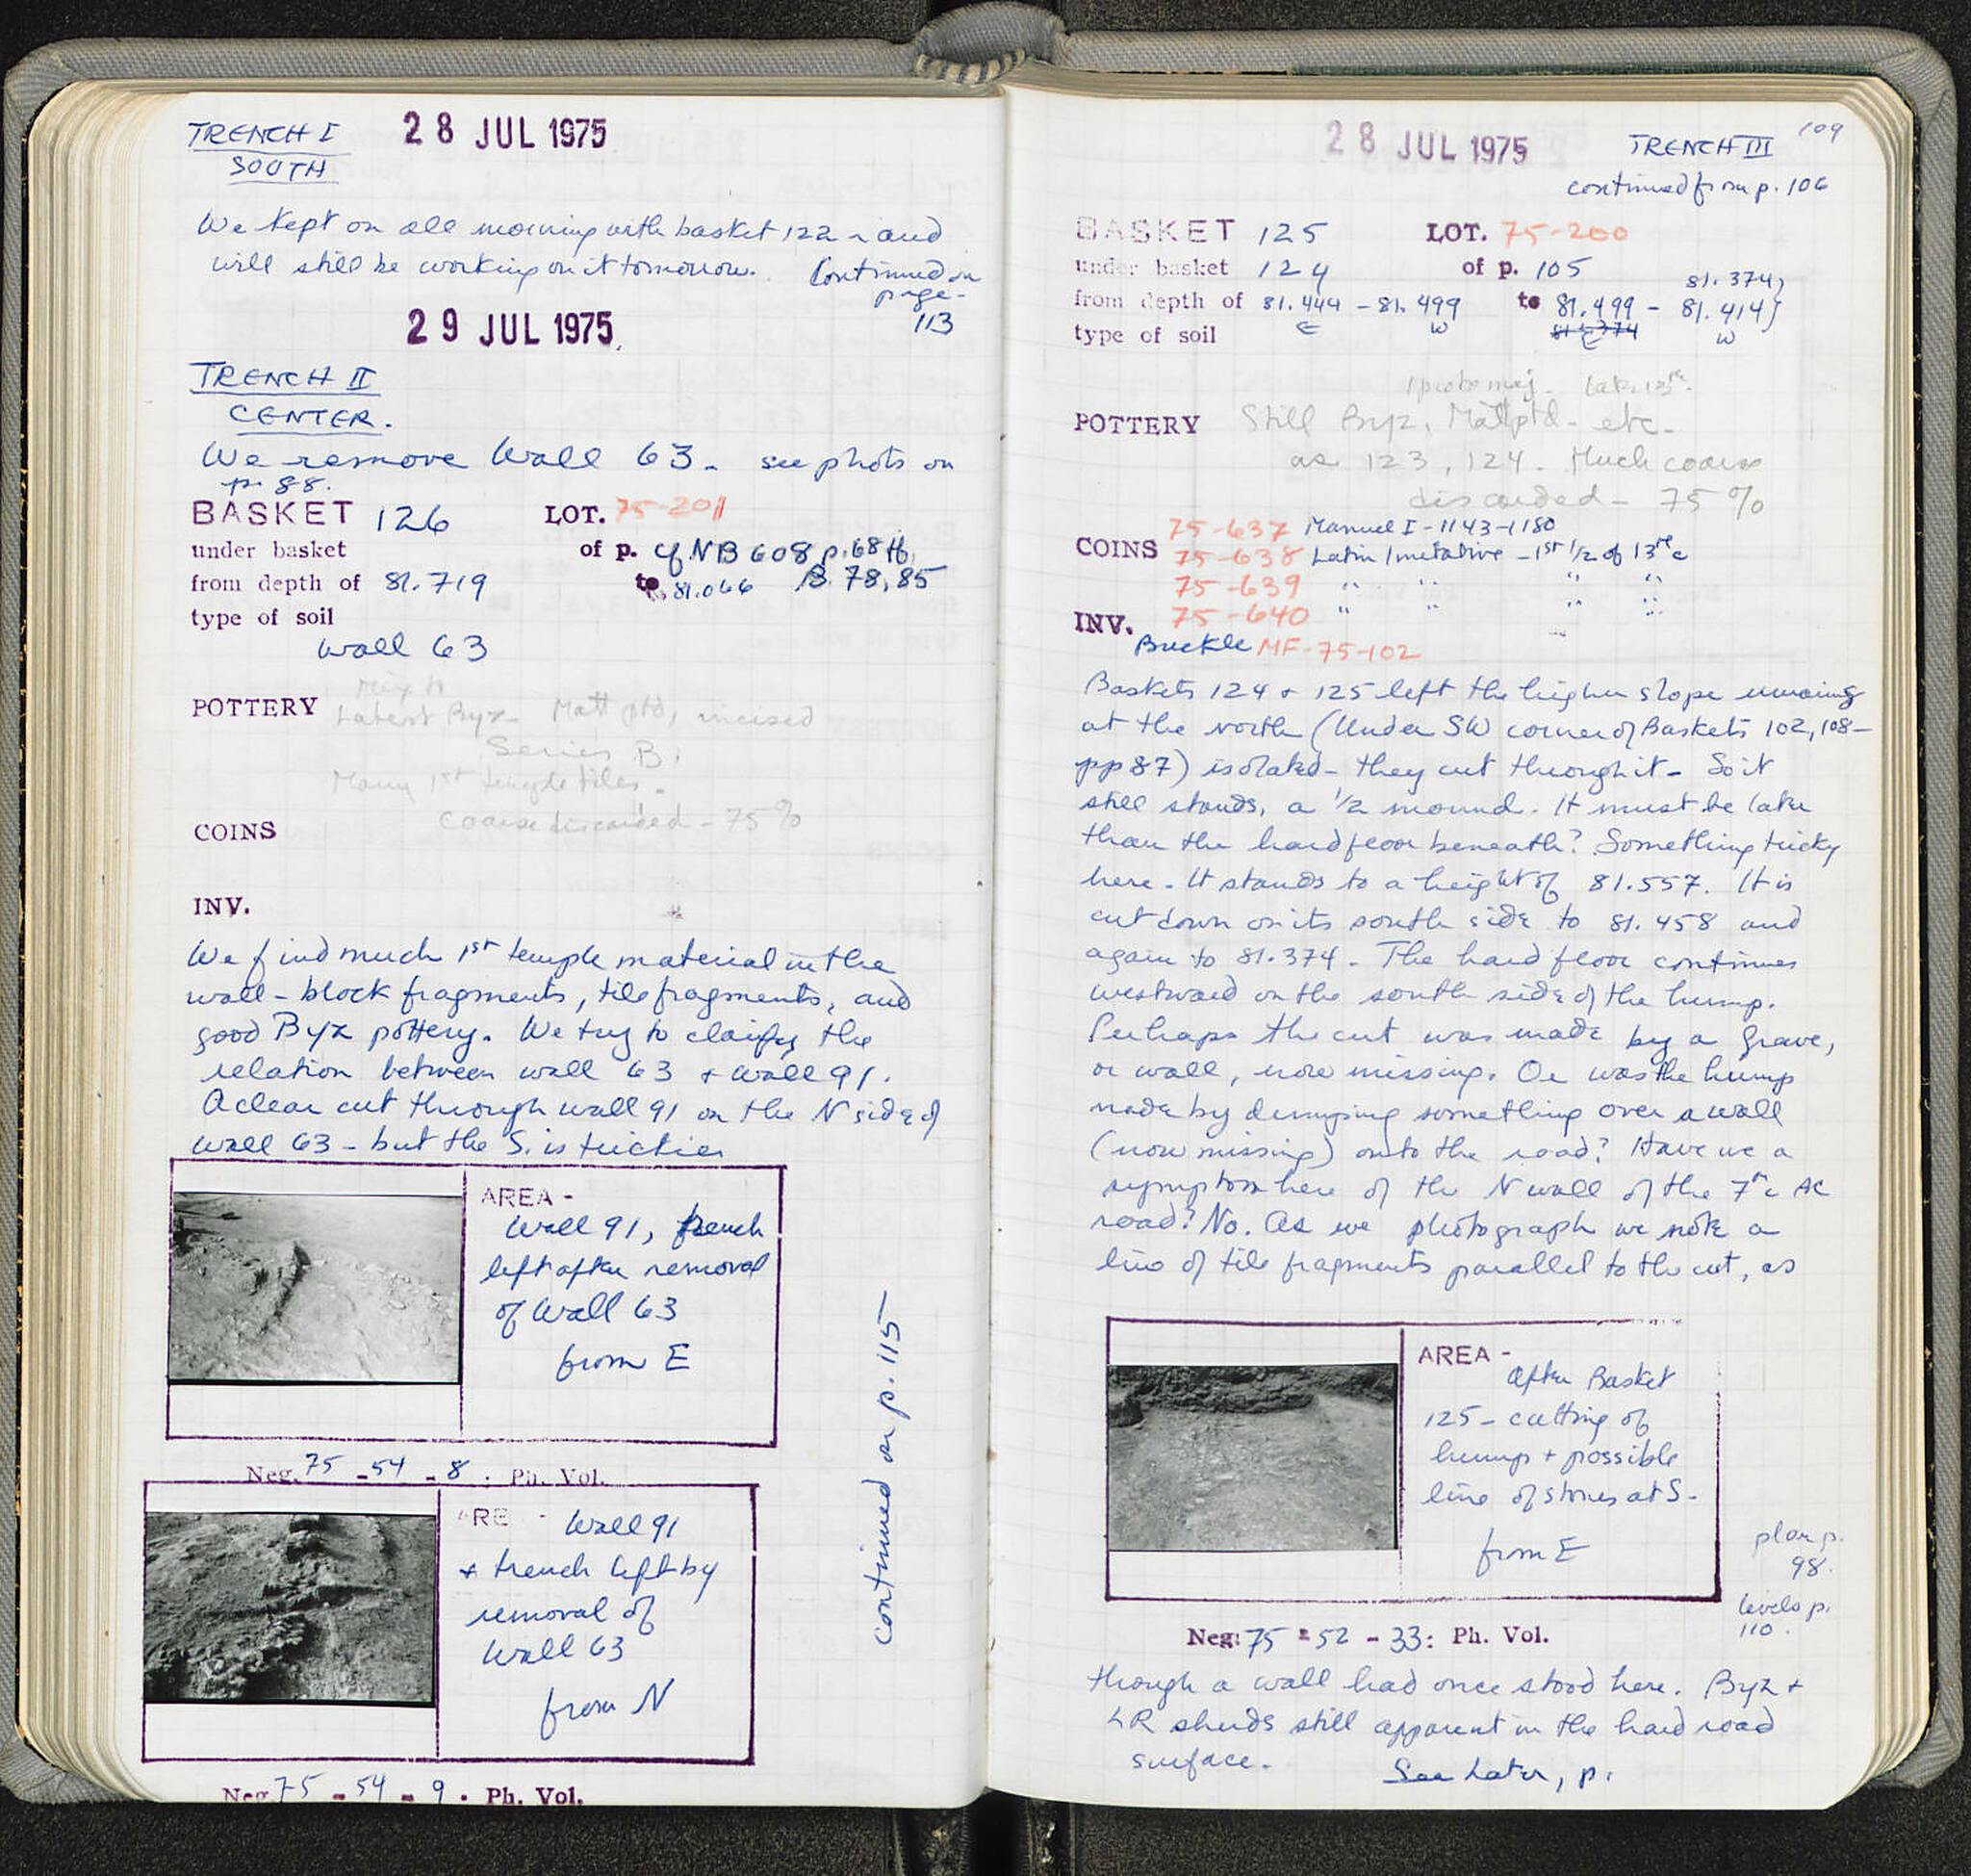 TRENCH I 28 JUL 1975
SOUTH
We kept on all morning with basket 122 - and
will still be working on it tomorrow. Continued on
page -
113
29 JUL 1975
TRENCH II
CENTER.
We remove Wall 63 - see photo on
p. 88.
BASKET 126 LOT. 75-201
under basket of p. cf NB 608 p. 68 ff.
from depth of 81.719 to 81.066 B 78, 85
type of soil
wall 63
Mix to
POTTERY Latest Byz - Matt ptd, incised
Series B.
Many 1st temple tiles -
coarse discarded - 75%
COINS
INV.
We find much 1st temple material in the
wall - block fragments, tile fragments, and
good Byz pottery. We try to clarify the
relation between wall 63 + wall 91.
A clear cut through wall 91 on the N side of
wall 63 - but the S. is trickier
AREA -
Wall 91, trench
left after removal
of Wall 63
from E
Neg. 75 - 54 - 8 : Ph. Vol.
ARE - Wall 91
+ trench left by
removal of
Wall 63
from N
Neg. 75 - 54 - 9 . Ph. Vol.
Continued on p. 115
109
28 JUL 1975 TRENCH III
continued from p. 106
BASKET 125 LOT. 75-200
under basket 124 of p. 105
81.374)
from depth of 81.444 - 81.499 to 81.499 - 81.414)
type of soil E W E W
1 proto maj. late 12th.
POTTERY Still Byz, Matt ptd - etc -
as 123, 124 - Much coarse
discarded - 75%
75-637 Manuel I - 1143-1180
COINS 75-638 Latin Imitative - 1st 1/2 of 13th c
75-639 " " " "
75-640 " " " "
INV.
Buckle MF-75-102
Baskets 124 + 125 left the higher slope running
at the north (Under SW corner of Baskets 102, 108 -
pp 87) isolated - they cut through it - So it
still stands, a 1/2 mound. It must be later
than the hard floor beneath? Something tricky
here - It stands to a height of 81.557. It is
cut down on its south side to 81.458 and
again to 81.374 - The hard floor continues
westward on the south side of the hump.
Perhaps the cut was made by a grave,
or wall, now missing. Or was the hump
made by dumping something over a wall
(now missing) onto the road? Have we a
symptom here of the N wall of the 7th c AC
road? No. As we photograph we note a
line of tile fragments parallel to the cut, as
AREA -
After Basket
125 - cutting of
hump + possible
line of stones at S -
from E
plan p.
98.
levels p.
110.
Neg: 75 - 52 - 33: Ph. Vol.
though a wall had once stood here. Byz +
LR sherds still apparent in the hard road
surface. See Later, p.